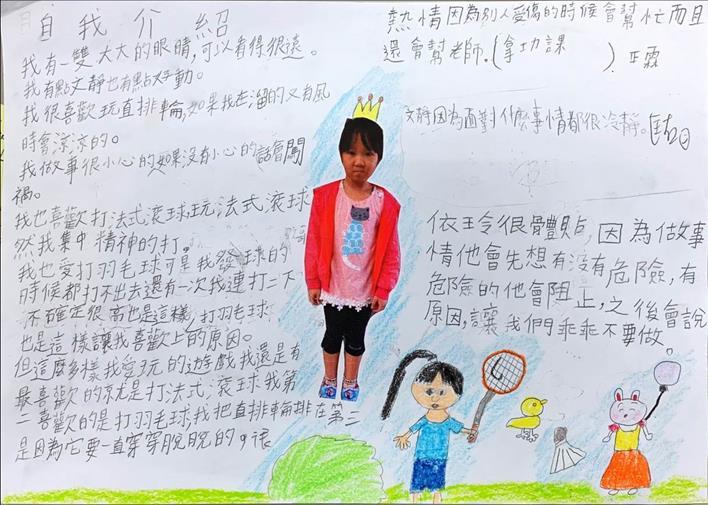 自我介紹
我有一雙大大的眼睛,可以看得很遠。
我有點文靜也有點好動。
我很喜歡玩直排輪,如果我在溜的又有風
時會涼涼的。
我做事很小心的如果沒有小心的話會闖
禍。
我也喜歡打法式滾球玩法式滾球
然我集中精神的打。
我也愛打羽毛球可是我發球的
時候都打不出去還有一次我連打二下
不確定很高也是這樣,打羽毛球
也是這樣讓我喜歡上的原因。
但這麼多樣我愛玩的遊戲我還是有
最喜歡的就是打法式滾球我第
二喜歡的是打羽毛球,我把直排輪排在第三
是因為它要一直穿穿脫脫的
熱情因為別人受傷的時候會幫忙而且
還會幫老師.(拿功課 )
文靜因為面對什麼事情都很冷靜。
依玲很體貼,因為做事
情他會先想有沒有危險,有
危險的他會阻止,之後會說
原因,讓我們乖乖不要做。